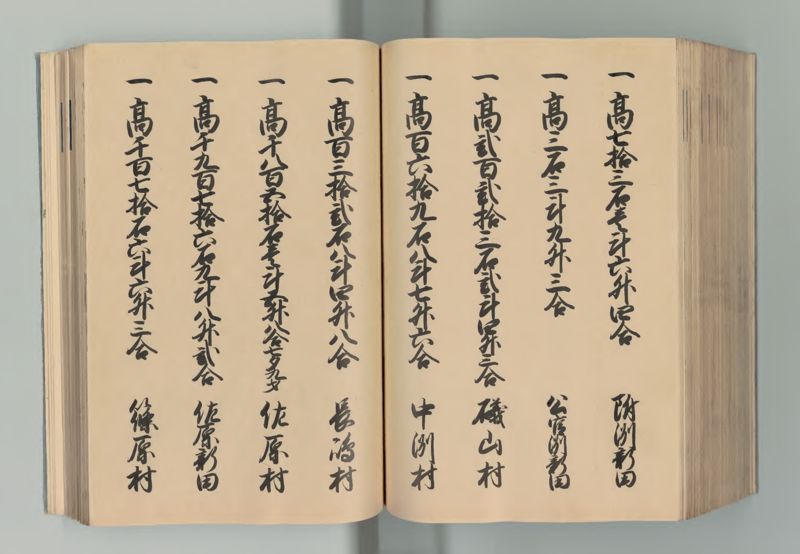 一 高七拾三石壱斗六升四合 附洲新田
一 高三石三斗九升三合 公官洲新田
一 高弐百弐拾三石弐斗四升三合 磯山村
一 高百六拾九石八斗七升六合 中洲村
一 高百三拾弐石八斗四升八合 長嶋村
一 高千八百五拾石壱斗五升八合七夕九才 佐原村
一 高千九百七拾六石九斗八升弐合 佐原新田
一 高千百七拾石六斗六升三合 篠原村